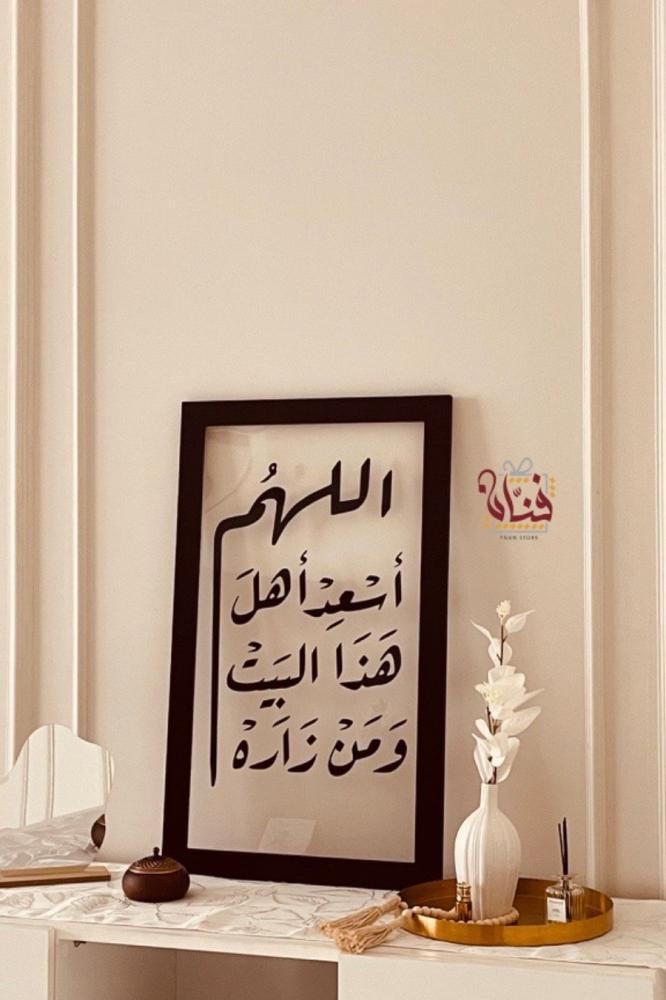 اللهُم
أسْعِدْ أهلَ
هَذَا البَيتْ
وَمَنْ زَارَهْ
فنّان
FNAN STORE